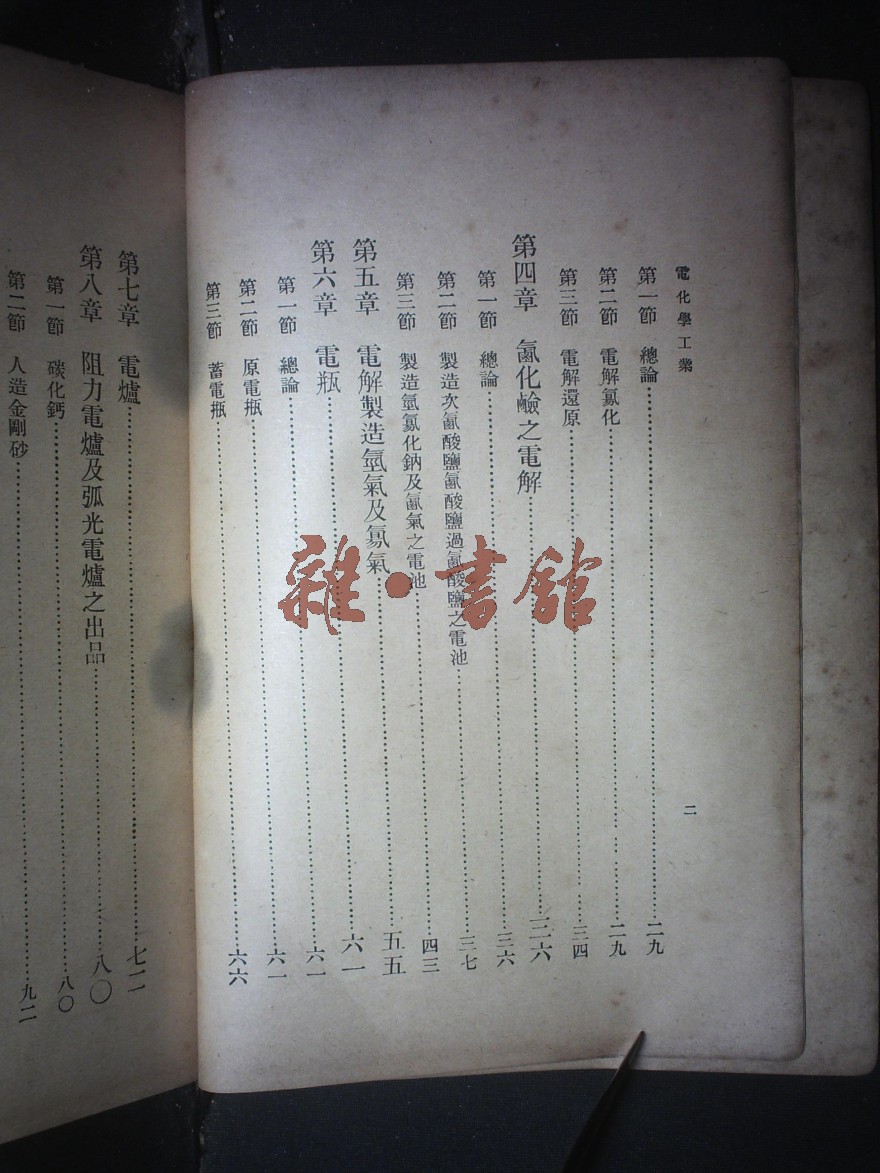 電化學工業
二
第一節 總論……二九
第二節 電解氱化……二九
第三節 電解還原……三四
第四章 氯化鹼之電解……三六
第一節 總論……三六
第二節 製造次氯酸鹽氯酸鹽過氯酸鹽之電池……三七
第三節 製造氫氱化鈉及氯氣之電池……四三
第五章 電解製造氫氣及氱氣……五五
第六章 電瓶……六一
第一節 總論……六一
第二節 原電瓶……六一
第三節 蓄電瓶……六六
第七章 電爐……七二
第八章 阻力電爐及弧光電爐之出品……八〇
第一節 碳化鈣……八〇
第二節 人造金剛砂……九二
雜·書館